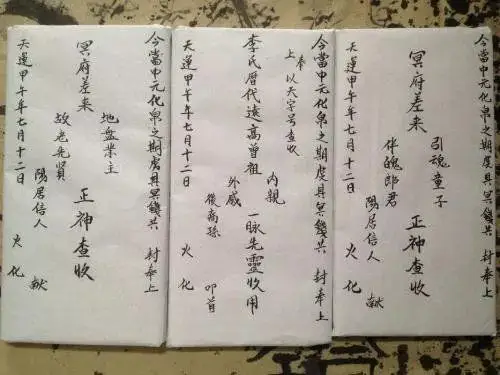 今當中元化帛之期虔具冥錢共 封奉上
引魂童子
冥府差来 正神查收
伴魄郎君
陽居信人 献
天運甲午年七月十二日 火化
今當中元化帛之期虔具冥錢共 封奉上
上奉 以天字号查收
內親
李氏歷代遠高曾祖 一脉先靈收用
外戚
後裔孫 叩首
天運甲午年七月十二日 火化
今當中元化帛之期虔具冥錢共 封奉上
地盤業主
冥府差来 正神查收
故老先賢
陽居信人 献
天運甲午年七月十二日 火化